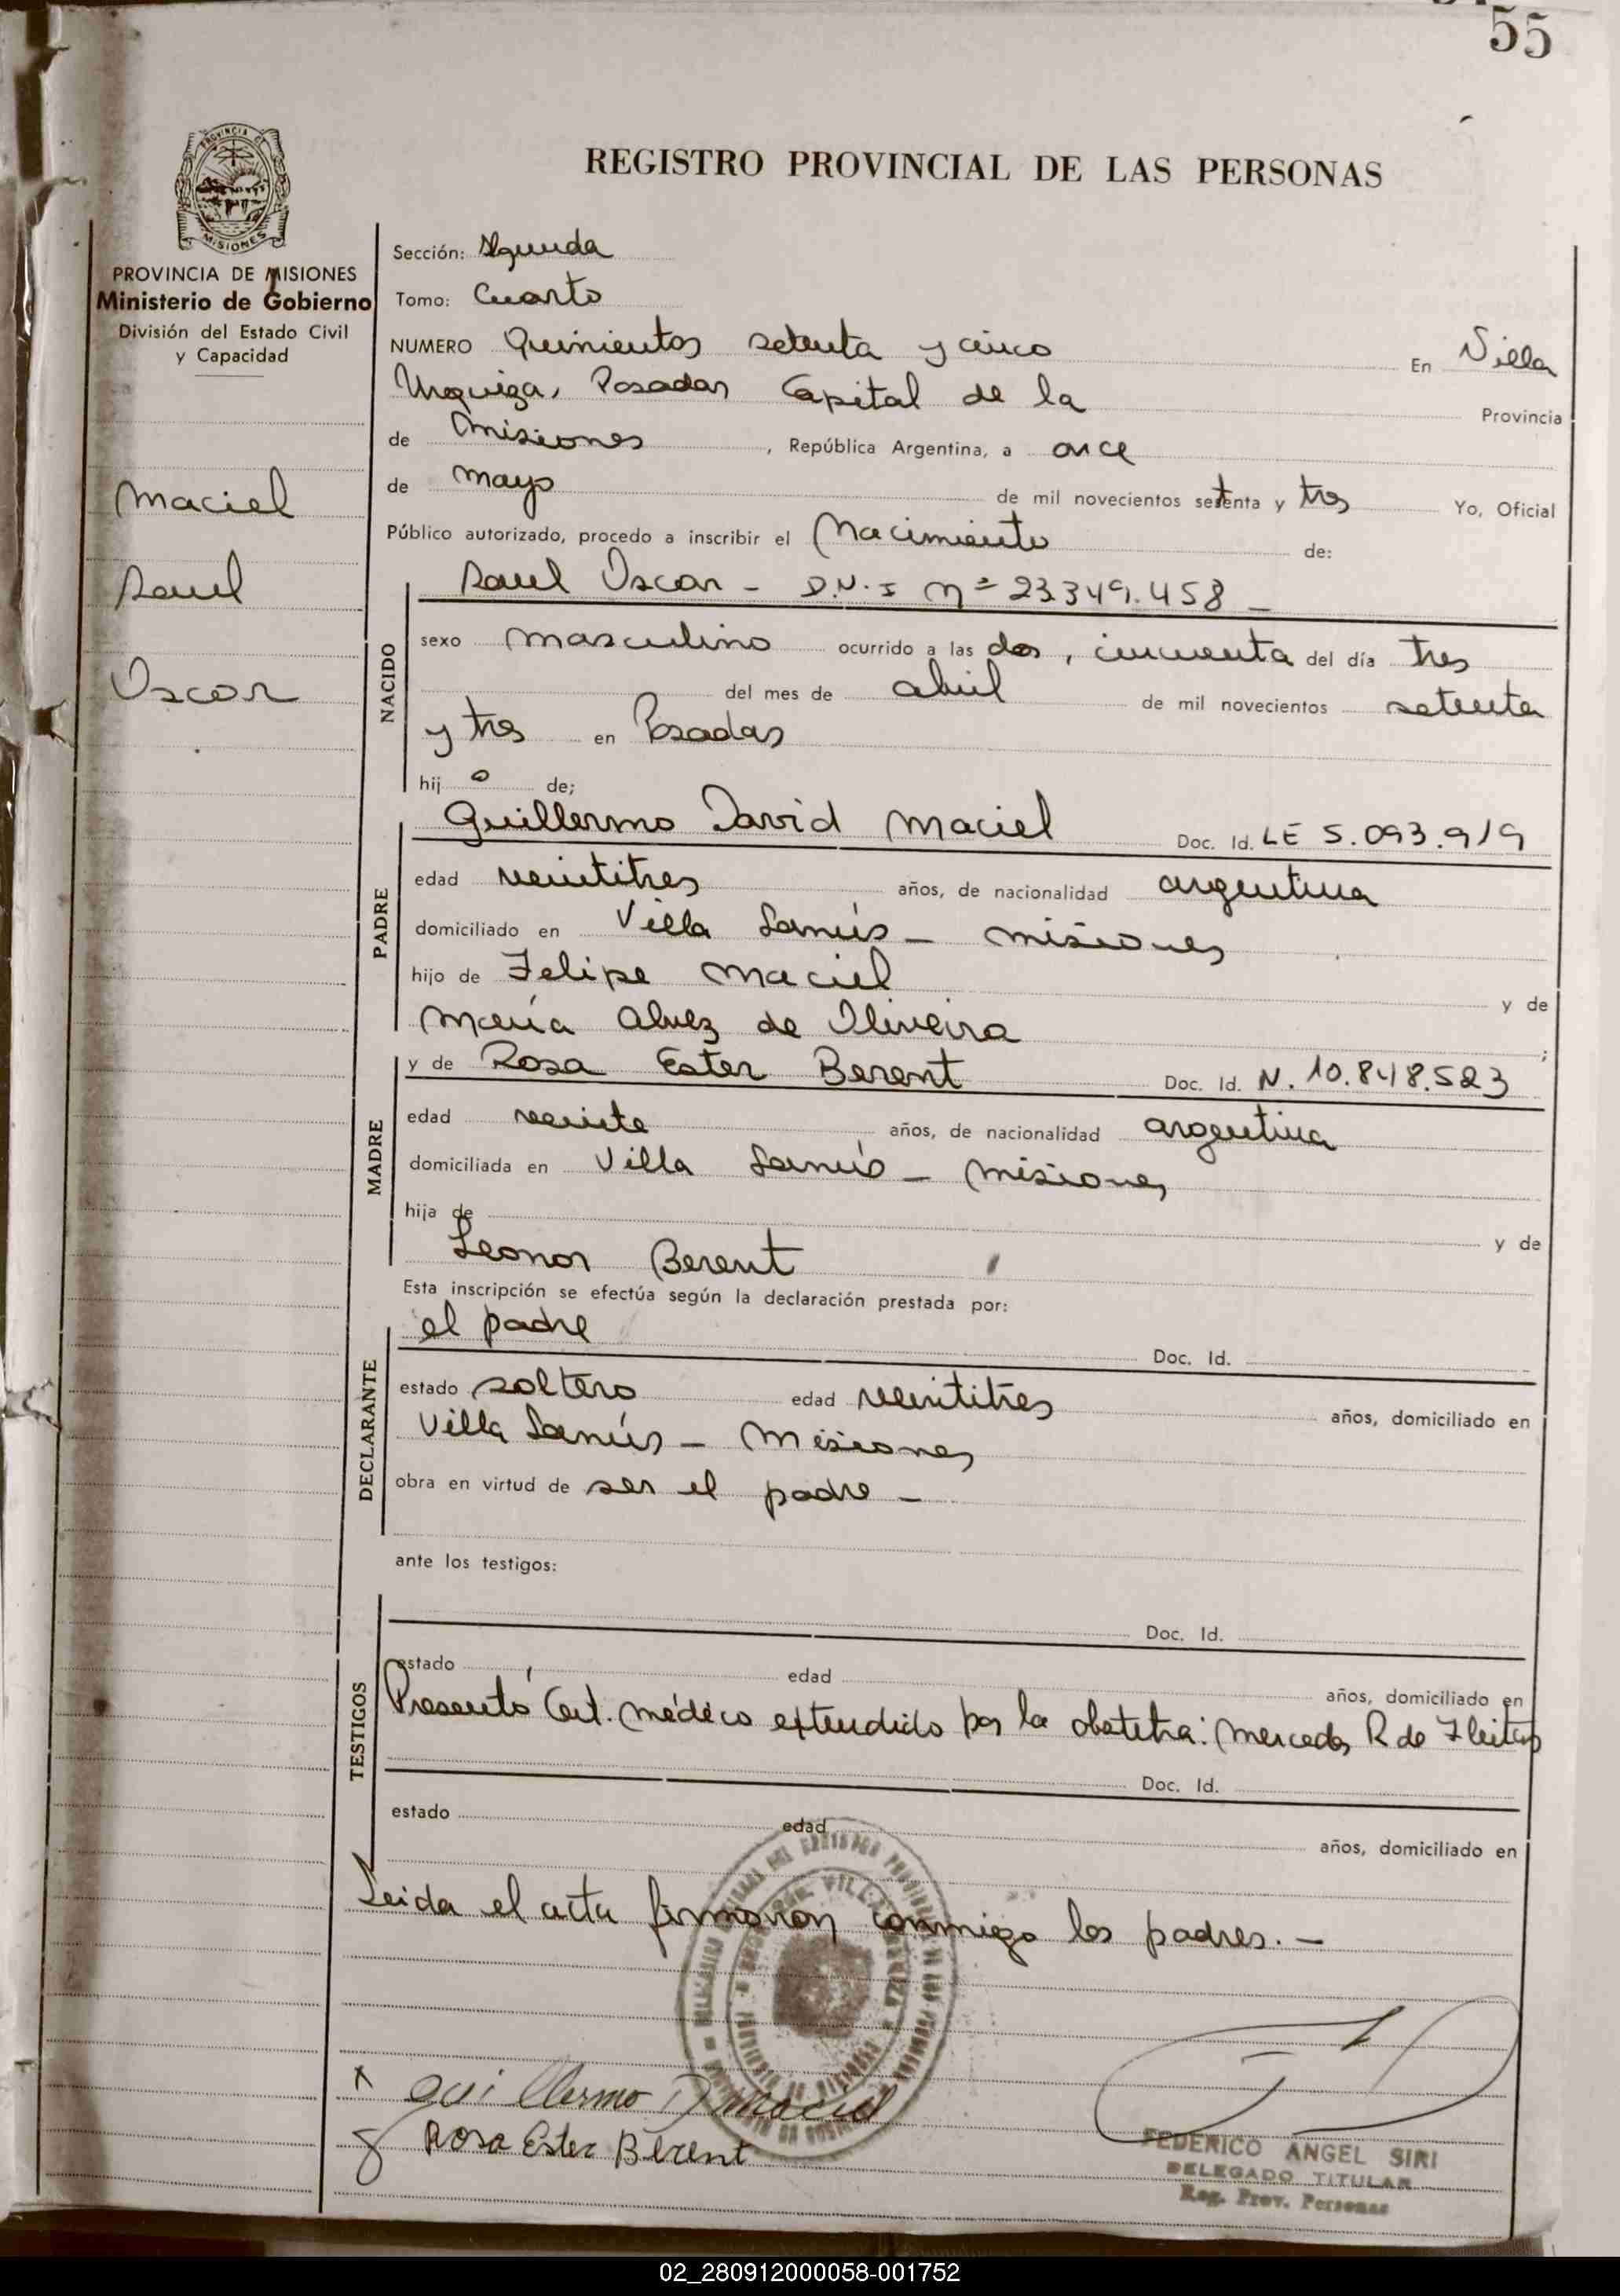 55
REGISTRO PROVINCIAL DE LAS PERSONAS
PROVINCIA DE MISIONES
Ministerio de Gobierno
División del Estado Civil
y Capacidad
Maciel
Raul
Oscar
Sección: Segunda
Tomo: Cuarto
NUMERO Quinientos setenta y cinco En Villa
Urquiza, Posadas Capital de la Provincia
de Misiones, República Argentina, a once
de mayo de mil novecientos setenta y tres Yo, Oficial
Público autorizado, procedo a inscribir el Nacimiento de:
NACIDO
Raul Oscar - D.N.I Nº 23.349.458 -
sexo masculino ocurrido a las dos, cincuenta del día tres
del mes de abril de mil novecientos setenta
y tres en Posadas
hij o de;
PADRE
Guillermo David Maciel Doc. Id. LE 5.093.919
edad veintitres años, de nacionalidad argentina
domiciliado en Villa Lanús - Misiones
hijo de Felipe Maciel y de
María Alvez de Oliveira ;
MADRE
y de Rosa Ester Berent Doc. Id. N. 10.848.523
edad veinte años, de nacionalidad argentina
domiciliada en Villa Lanús - Misiones
hija de y de
Leonor Berent
Esta inscripción se efectúa según la declaración prestada por:
DECLARANTE
el padre Doc. Id.
estado soltero edad veintitres años, domiciliado en
Villa Lanús - Misiones
obra en virtud de ser el padre -
ante los testigos:
TESTIGOS
Doc. Id.
estado edad años, domiciliado en
Presentó Cert. médico extendido por la obstetra: Mercedes R de Fleitas
Doc. Id.
estado edad años, domiciliado en
Leida el acta firmaron conmigo los padres. -
x Guillermo D Maciel
Rosa Ester Berent
FEDERICO ANGEL SIRI
DELEGADO TITULAR
Reg. Prov. Personas
02_280912000058-001752